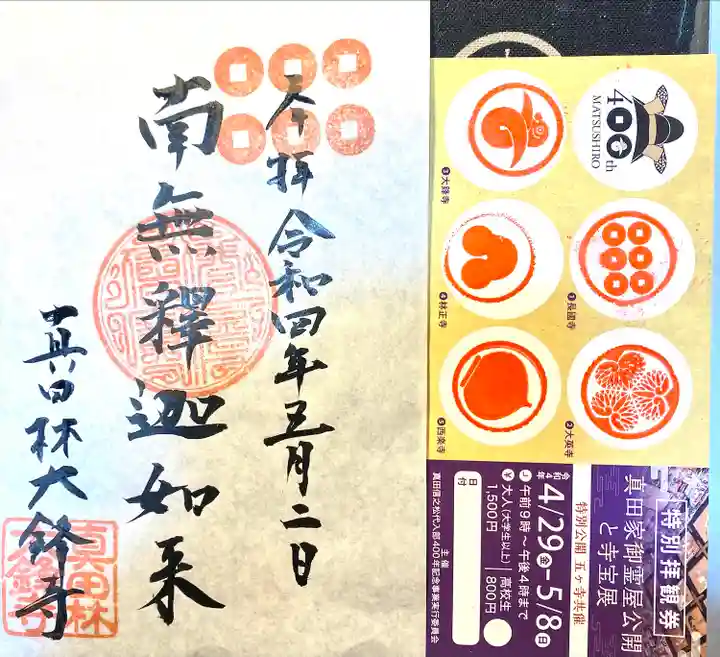 奉拝 令和四年五月二日
南無釋迦如来
真田林大鋒寺
真田林
大鋒寺
400th
MATSUSHIRO
❶長國寺
❷大英寺
❸大鋒寺
❹林正寺
❺西楽寺
特別拝観券
真田家御霊屋公開
と寺宝展
特別公開 五ヶ寺共催
令和4年
4/29(金)-5/8(日)
午前9時~午後4時まで
¥ 大人(大学生以上) 1,500円
高校生 800円
日付
主催
真田信之松代入部400年記念事業実行委員会